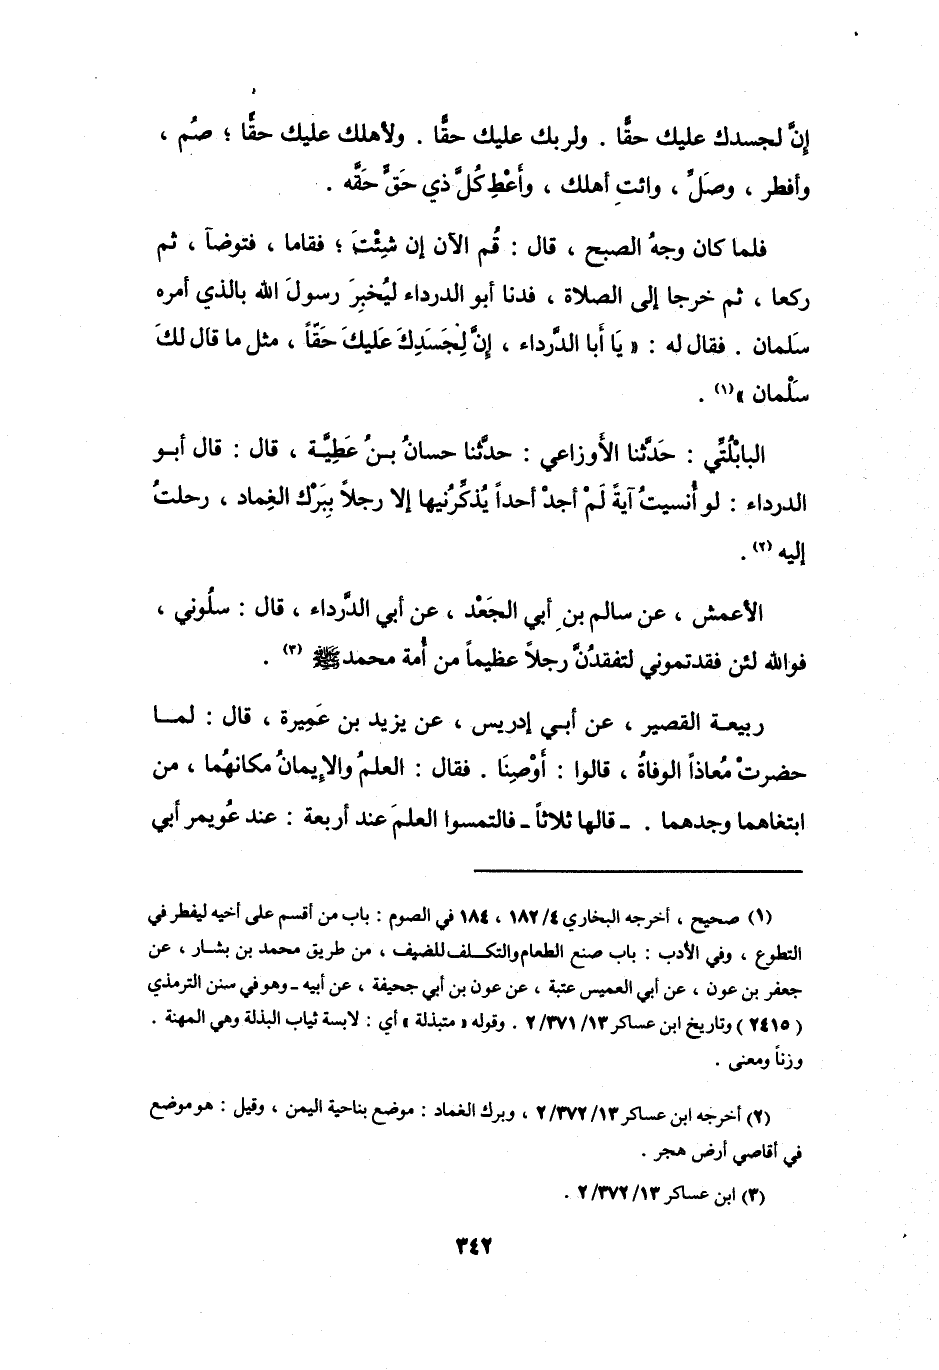 إِنَّ لجسدك عليك حقًّا . ولربك عليك حقًّا . ولأهلك عليك حقًّا ؛ صُم ،
وأفطر ، وصَلِّ ، وائتِ أهلك ، وأَعْطِ كُلَّ ذي حَقٍّ حَقَّه .
فلما كان وجهُ الصبح ، قال : قُم الآن إن شِئْتَ ؛ فقاما ، فتوضآ ، ثم
ركعا ، ثم خرجا إلى الصلاة ، فدنا أبو الدرداء ليُخبِرَ رسولَ الله بالذي أمره
سَلمان . فقال له : « يَا أَبا الدَّرداء ، إِنَّ لِجَسَدِكَ عَليكَ حَقّاً ، مثل ما قال لكَ
سَلْمان »(١) .
البابْلُتِّي : حَدَّثنا الأَوزاعي : حدَّثنا حسانُ بنُ عَطِيَّة ، قال : قال أبو
الدرداء : لو أُنسيتُ آيةً لَمْ أجدْ أحداً يُذكِّرُنيها إلا رجلاً بِبَرْك الغِماد ، رحلتُ
إليه (٢) .
الأعمش ، عن سالم بنِ أبي الجَعْد ، عن أبي الدَّرداء ، قال : سلُوني ،
فوالله لئن فقدتموني لتفقدُنَّ رجلاً عظيماً من أُمة محمد ﷺ (٣) .
ربيعة القصير ، عن أبي إدريس ، عن يزيد بن عَمِيرة ، قال : لما
حضرتْ مُعاذاً الوفاةُ ، قالوا : أَوْصِنَا . فقال : العلمُ والإِيمانُ مكانهُما ، من
ابتغاهما وجدهما . ـ قالها ثلاثاً ـ فالتمسوا العلمَ عند أربعة : عند عُويمر أبي
(١) صحيح ، أخرجه البخاري ٤/ ١٨٢ ، ١٨٤ في الصوم : باب من أقسم على أخيه ليفطر في
التطوع ، وفي الأدب : باب صنع الطعام والتكلف للضيف ، من طريق محمد بن بشار ، عن
جعفر بن عون ، عن أبي العميس عتبة ، عن عون بن أبي جحيفة ، عن أبيه ـ وهو في سنن الترمذي
( ٢٤١٥ ) وتاريخ ابن عساكر ١٣/ ٣٧١/ ٢ . وقوله « متبذلة » أي : لابسة ثياب البذلة وهي المهنة .
وزناً ومعنى .
(٢) أخرجه ابن عساكر ١٣/ ٣٧٢/ ٢ ، وبرك الغماد : موضع بناحية اليمن ، وقيل : هو موضع
في أقاصي أرض هجر .
(٣) ابن عساكر ١٣/ ٣٧٢/ ٢ .
٣٤٢